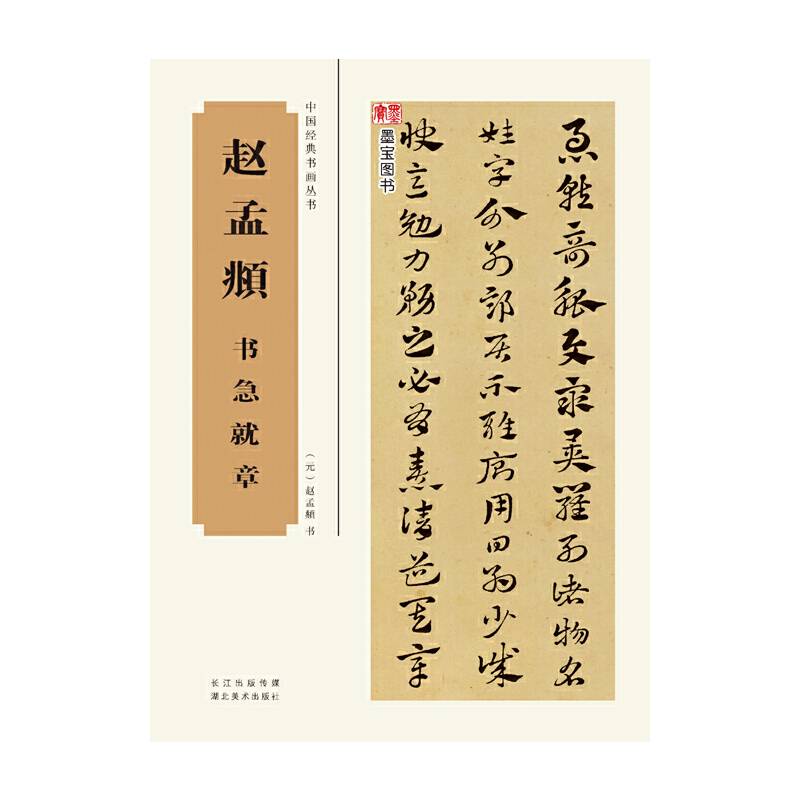 中国经典书画丛书
赵孟頫
书急就章
（元）赵孟頫 书
长江出版传媒
湖北美术出版社
墨寶
墨宝图书
急就奇觚與衆異羅列諸物名
姓字分別部居不雜廁用日約少誠
快意勉力務之必有憙請道其章